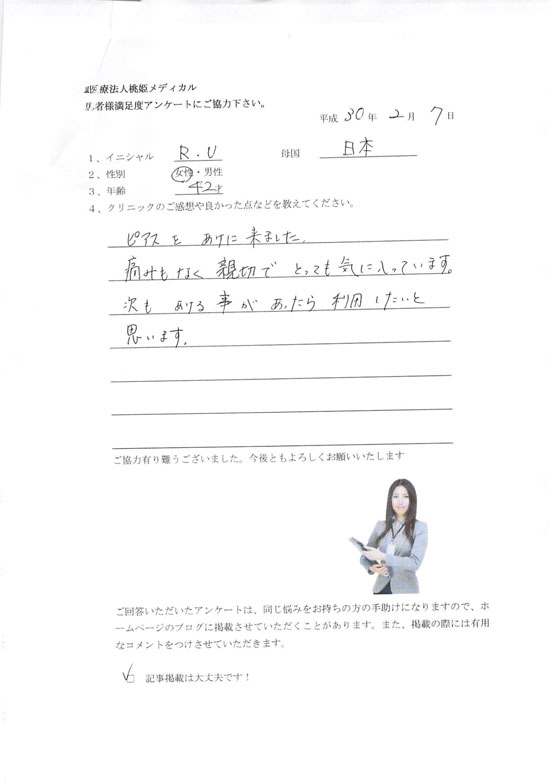 医療法人桃姫メディカル
患者様満足度アンケートにご協力下さい。
平成 30 年 2 月 7 日
1、イニシャル R.U 母国 日本
2、性別 女性・男性
3、年齢 42才
4、クリニックのご感想や良かった点などを教えてください。
ピアスを あけに 来ました。
痛みもなく 親切で とっても 気に入っています。
次も あける 事が あったら 利用したいと
思います。
ご協力有り難うございました。今後ともよろしくお願いいたします
ご回答いただいたアンケートは、同じ悩みをお持ちの方の手助けになりますので、ホ
ームページのブログに掲載させていただくことがあります。また、掲載の際には有用
なコメントをつけさせていただきます。
記事掲載は大丈夫です！